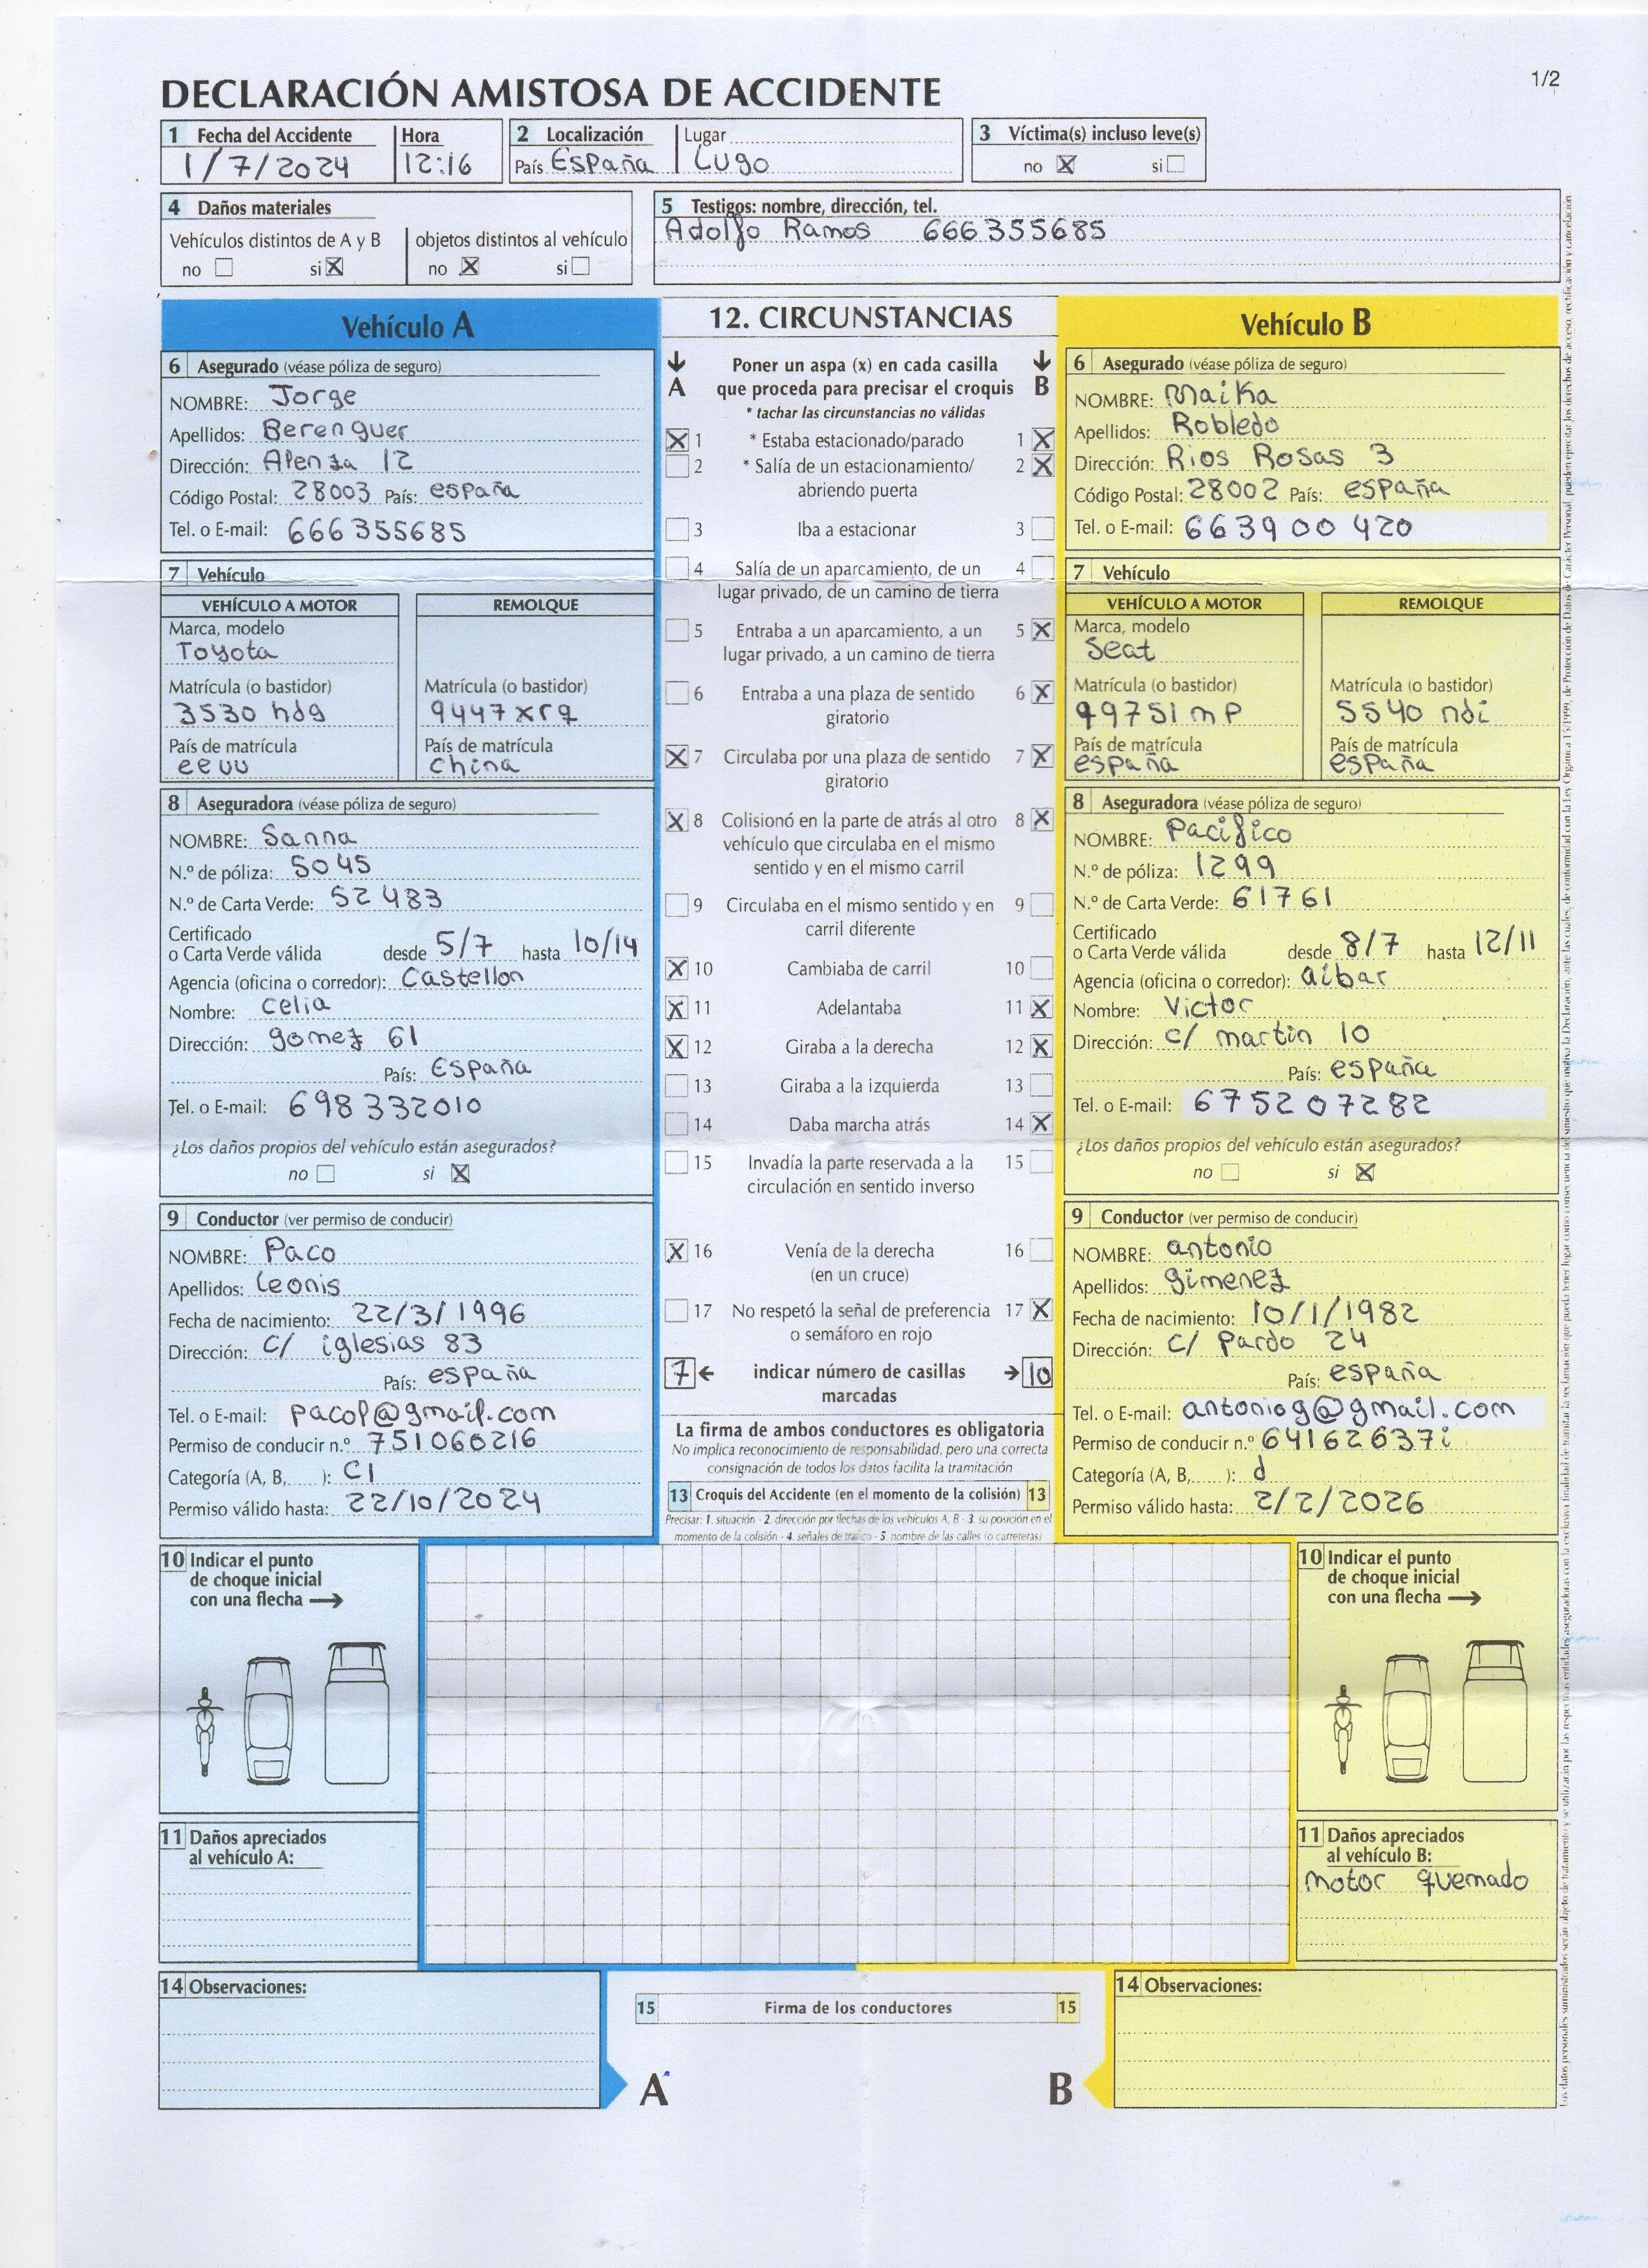 1/2
DECLARACIÓN AMISTOSA DE ACCIDENTE
1 Fecha del Accidente
1/7/2024
Hora
12:16
2 Localización
País España
Lugar
Lugo
3 Víctima(s) incluso leve(s)
no X si
4 Daños materiales
Vehículos distintos de A y B
no si X
objetos distintos al vehículo
no X si
5 Testigos: nombre, dirección, tel.
Adolfo Ramos 666355685
Vehículo A
6 Asegurado (véase póliza de seguro)
NOMBRE: Jorge
Apellidos: Berenguer
Dirección: Alenza 12
Código Postal: 28003 País: españa
Tel. o E-mail: 666355685
7 Vehículo
VEHÍCULO A MOTOR
Marca, modelo
Toyota
Matrícula (o bastidor)
3530 hdg
País de matrícula
eeuu
REMOLQUE
Matrícula (o bastidor)
9447 xrq
País de matrícula
china
8 Aseguradora (véase póliza de seguro)
NOMBRE: Sanna
N.º de póliza: 5045
N.º de Carta Verde: 52483
Certificado
o Carta Verde válida desde 5/7 hasta 10/14
Agencia (oficina o corredor): Castellon
Nombre: celia
Dirección: gomez 61
País: España
Tel. o E-mail: 698332010
¿Los daños propios del vehículo están asegurados?
no si X
9 Conductor (ver permiso de conducir)
NOMBRE: Paco
Apellidos: leonis
Fecha de nacimiento: 22/3/1996
Dirección: c/ iglesias 83
País: españa
Tel. o E-mail: pacol@gmail.com
Permiso de conducir n.º 751060216
Categoría (A, B, ): C1
Permiso válido hasta: 22/10/2024
12. CIRCUNSTANCIAS
A Poner un aspa (x) en cada casilla B
que proceda para precisar el croquis
* tachar las circunstancias no válidas
X 1 * Estaba estacionado/parado 1 X
2 * Salía de un estacionamiento/ 2 X
abriendo puerta
3 Iba a estacionar 3
4 Salía de un aparcamiento, de un 4
lugar privado, de un camino de tierra
5 Entraba a un aparcamiento, a un 5 X
lugar privado, a un camino de tierra
6 Entraba a una plaza de sentido 6 X
giratorio
X 7 Circulaba por una plaza de sentido 7 X
giratorio
X 8 Colisionó en la parte de atrás al otro 8 X
vehículo que circulaba en el mismo
sentido y en el mismo carril
9 Circulaba en el mismo sentido y en 9
carril diferente
X 10 Cambiaba de carril 10
X 11 Adelantaba 11 X
X 12 Giraba a la derecha 12 X
13 Giraba a la izquierda 13
14 Daba marcha atrás 14 X
15 Invadía la parte reservada a la 15
circulación en sentido inverso
X 16 Venía de la derecha 16
(en un cruce)
17 No respetó la señal de preferencia 17 X
o semáforo en rojo
7 ← indicar número de casillas → 10
marcadas
La firma de ambos conductores es obligatoria
No implica reconocimiento de responsabilidad, pero una correcta
consignación de todos los datos facilita la tramitación
13 Croquis del Accidente (en el momento de la colisión) 13
Precisar: 1. situación - 2. dirección por flechas de los vehículos A, B - 3. su posición en el
momento de la colisión - 4. señales de tráfico - 5. nombre de las calles (o carreteras)
Vehículo B
6 Asegurado (véase póliza de seguro)
NOMBRE: Maika
Apellidos: Robledo
Dirección: Rios Rosas 3
Código Postal: 28002 País: españa
Tel. o E-mail: 663900420
7 Vehículo
VEHÍCULO A MOTOR
Marca, modelo
Seat
Matrícula (o bastidor)
99751 mp
País de matrícula
españa
REMOLQUE
Matrícula (o bastidor)
5540 ndi
País de matrícula
españa
8 Aseguradora (véase póliza de seguro)
NOMBRE: Pacifico
N.º de póliza: 1299
N.º de Carta Verde: 61761
Certificado
o Carta Verde válida desde 8/7 hasta 12/11
Agencia (oficina o corredor): aibar
Nombre: Victor
Dirección: c/ martin 10
País: españa
Tel. o E-mail: 675207282
¿Los daños propios del vehículo están asegurados?
no si X
9 Conductor (ver permiso de conducir)
NOMBRE: antonio
Apellidos: gimenez
Fecha de nacimiento: 10/1/1982
Dirección: c/ Pardo 24
País: españa
Tel. o E-mail: antoniog@gmail.com
Permiso de conducir n.º 64162637i
Categoría (A, B, ): d
Permiso válido hasta: 2/2/2026
10 Indicar el punto
de choque inicial
con una flecha →
11 Daños apreciados
al vehículo A:
10 Indicar el punto
de choque inicial
con una flecha →
11 Daños apreciados
al vehículo B:
motor quemado
14 Observaciones:
15 Firma de los conductores 15
A B
14 Observaciones: